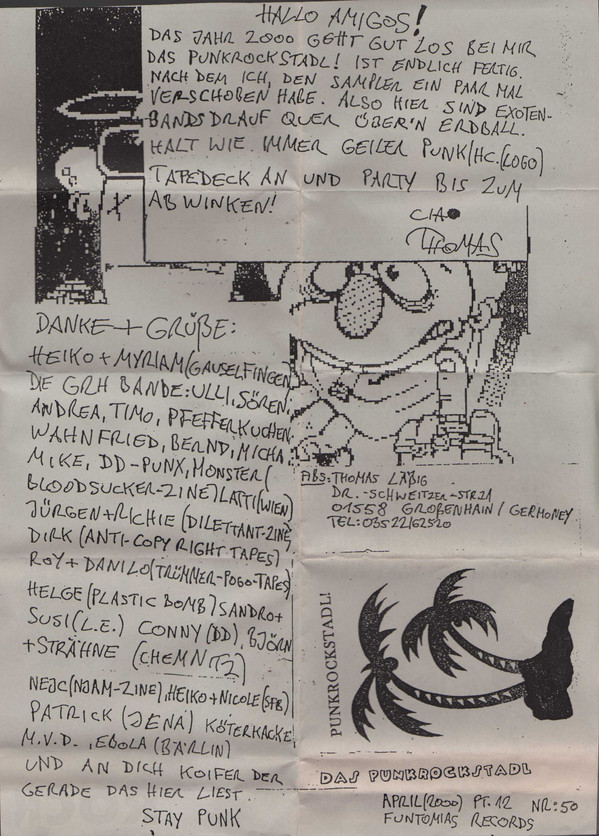 HALLO AMIGOS!
DAS JAHR 2000 GEHT GUT LOS BEI MIR
DAS PUNKROCKSTADL! IST ENDLICH FERTIG.
NACH DEM ICH, DEN SAMPLER EIN PAAR MAL
VERSCHOBEN HABE. ALSO HIER SIND EXOTEN-
BANDS DRAUF QUER ÜBER'N ERDBALL.
HALT WIE IMMER GEILER PUNK/HC.(LOGO)
TAPEDECK AN UND PARTY BIS ZUM
ABWINKEN!
CIAO
THOMAS
DANKE + GRÜßE:
HEIKO + MYRIAM (GAUSELFINGEN)
DIE GRH BANDE: ULLI, SÖREN,
ANDREA, TIMO, PFEFFERKUCHEN,
WAHNFRIED, BERND, MICHA
MIKE, DD-PUNX, MONSTER (
BLOODSUCKER-ZINE) LATTI (WIEN)
JÜRGEN + RICHIE (DILETTANT-ZINE)
DIRK (ANTI-COPY RIGHT TAPES)
ROY + DANILO (TRÜMMER-POGO-TAPES)
HELGE (PLASTIC BOMB) SANDRO +
SUSI (L.E.) CONNY (DD), BJÖRN
+ STRÄHNE (CHEMNITZ)
NEJC (NJAM-ZINE), HEIKO + NICOLE (SPB)
PATRICK (JENA) KÖTERKACKE,
M.V.D., EBOLA (BÄRLIN)
UND AN DICH KOIFER DER
GERADE DAS HIER LIEST.
STAY PUNK
ABS: THOMAS LÄßIG
DR.-SCHWEITZER-STR.21
01558 GROßENHAIN / GERMONEY
TEL: 03522/62520
PUNKROCKSTADL!
DAS PUNKROCKSTADL
APRIL (2000) PT. 12 NR: 50
FUNTOMIAS RECORDS